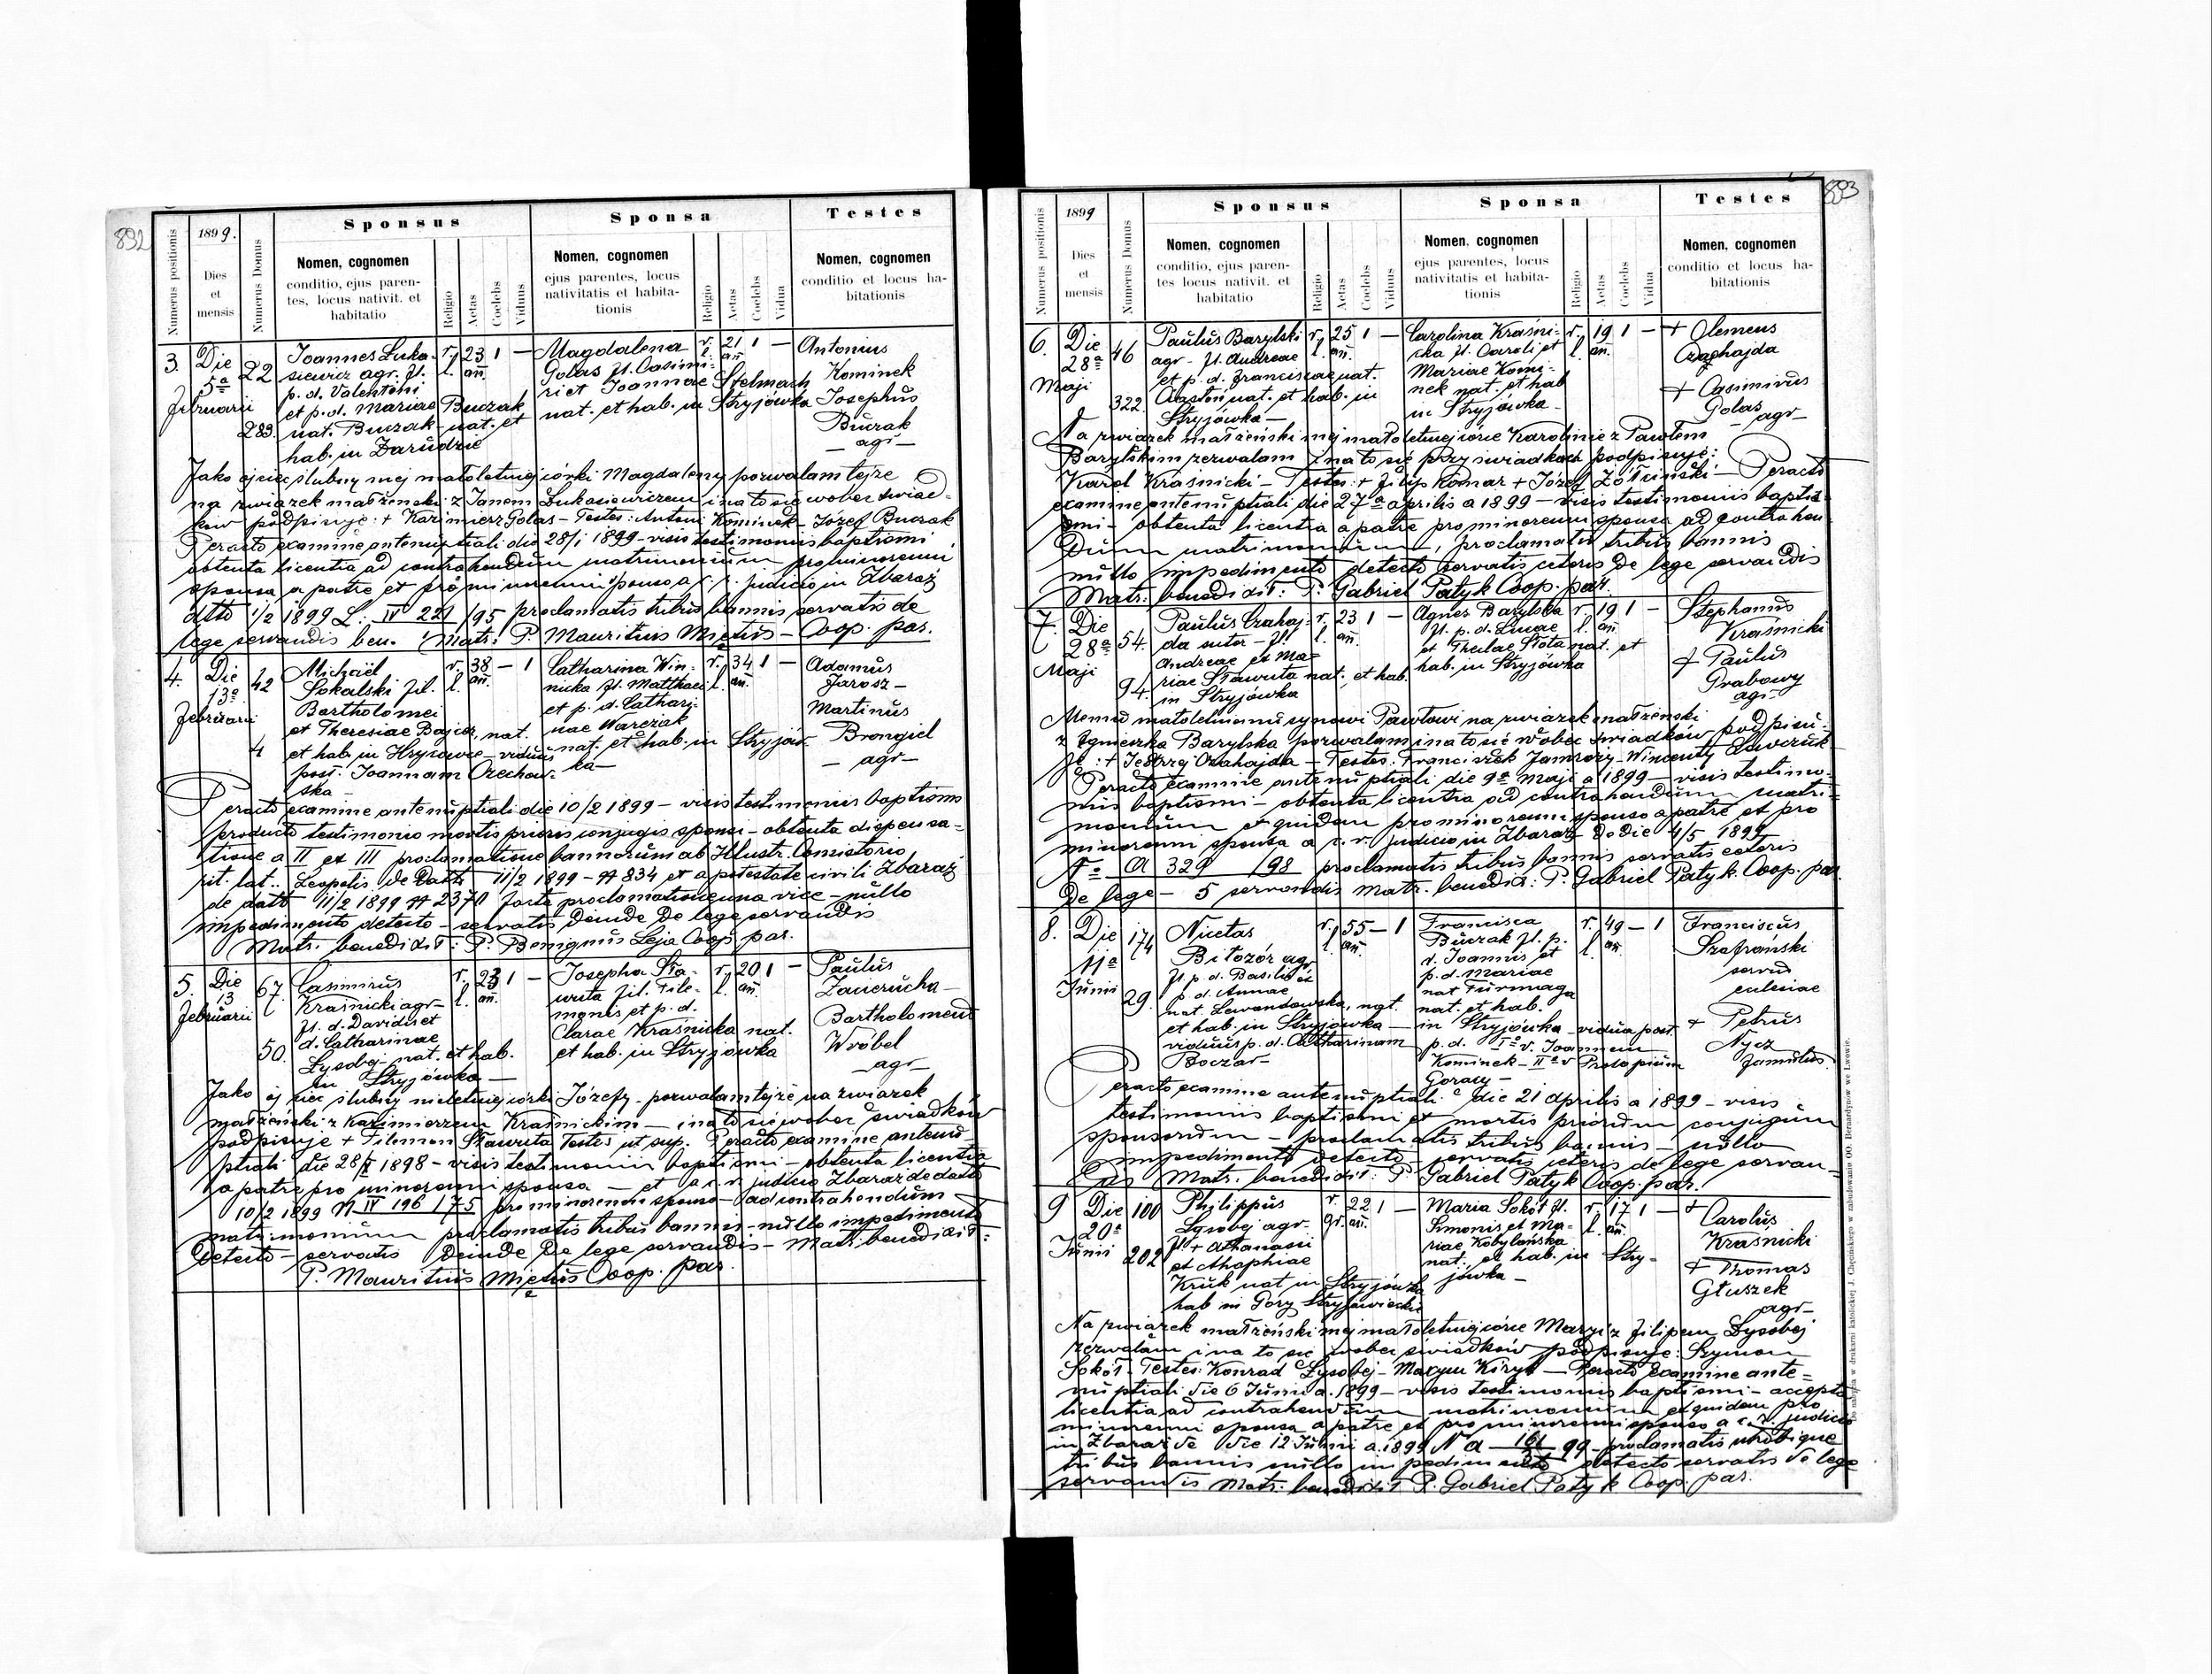 892
1899.
Sponsus
Sponsa
Testes
Numerus positionis
Dies et mensis
Numerus Domus
Nomen, cognomen
conditio, ejus paren-
tes, locus nativit. et
habitatio
Religio
Aetas
Coelebs
Viduus
Nomen, cognomen
ejus parentes, locus
nativitatis et habita-
tionis
Religio
Aetas
Coelebs
Vidua
Nomen, cognomen
conditio et locus ha-
bitationis
3. Die 5a Februarii
22
283.
Joannes Luka-
siewicz agr. fil.
p. d. Valentini
et p. d. Mariae Buczak
nat. Buczak nat. et
hab. in Zarudzie
r. l. 23 an. 1 –
Magdalena
Golas fl. Casimi-
ri et Joannae Stelmach
nat. et hab. in Stryjówka
r. l. 21 an. 1 –
Antonius
Kominek
Josephus
Buczak
– agr –
Jako ojciec ślubny mej małoletniej córki Magdaleny pozwalam tejże
na związek małżeński z Janem Łukasiewiczem i na to się wobec świad-
ków podpisuję: + Kazimierz Golas – Testes: Antoni Kominek – Józef Buczak
Peracto examine antenuptiali die 28/1 1899 – visis testimoniis baptismi
obtenta licentia ad contrahendum matrimonium pro minorenni
sponsa a patre et pro minorenni sponso a c. r. judicio in Zbaraż
dtto 1/2 1899 L. IV 221/95 proclamatis tribus bannis servatis de
lege servandis ben. Matr. P. Mauritius Miętus – Coop. par.
4. Die 13a Februarii
42
4
Michaël
Sokalski fil.
Bartholomei
et Theresiae Bajcar, nat.
et hab. in Hrycowce – viduus
post. Joannam Orechow-
ska –
r. l. 38 an. – 1
Catharina Win-
nicka fl. Matthaei
et p. d. Cathari-
nae Warczak
nat. et hab. in Stryjów-
ka –
r. l. 34 an. 1 –
Adamus
Jarosz –
Martinus
Brongiel
– agr –
Peracto examine antenuptiali die 10/2 1899 – visis testimoniis baptismi
producto testimonio mortis prioris conjugis sponsi – obtenta dispensa-
tione a II et III proclamatione bannorum ab Illustr. Consistorio
rit. lat. Leopolis de dato 11/2 1899 – # 834 et a potestate civili Zbaraż
de dato 11/2 1899 # 2370 facta proclamatione una vice – nullo
impedimento detecto – servatis deinde de lege servandis
Matr. benedixit: P. Benignus Leja Coop par.
5. Die 13 Februarii
67.
50.
Casimirus
Kraśnicki agr –
fl. d. Davidis et
d. Catharinae
Łysobej nat. et hab.
in Stryjówka –
r. l. 23 an. 1 –
Josepha Sła-
wuta fil. File-
mones et p. d.
Clarae Kraśnicka nat.
et hab. in Stryjówka
r. l. 20 an. 1 –
Paulus
Zawierucha –
Bartholomeus
Wróbel
– agr –
Jako ojciec ślubny nieletniej córki Józefy – pozwalam tejże na związek
małżeński z Kazimierzem Kraśnickim – i na to się wobec świadków
podpisuję + Filemon Sławuta Testes ut sup. Peracto examine antenu-
ptiali die 28/X 1898 – visis testimoniis baptismi – obtenta licentia
a patre pro minorenni sponsa – et a c. r. judicio Zbaraż de dato
10/2 1899 N IV 196/75 pro minorenni sponso – ad contrahendum
matrimonium proclamatis tribus bannis – nullo impedimento
detecto – servatis deinde de lege servandis – Matr. benedixit:
P. Mauritius Miętus Coop. par.
893
1899
Sponsus
Sponsa
Testes
Numerus positionis
Dies et mensis
Numerus Domus
Nomen, cognomen
conditio, ejus paren-
tes locus nativit. et
habitatio
Religio
Aetas
Coelebs
Viduus
Nomen, cognomen
ejus parentes, locus
nativitatis et habita-
tionis
Religio
Aetas
Coelebs
Vidua
Nomen, cognomen
conditio et locus ha-
bitationis
6. Die 28a Maji
46
322.
Paulus Barylski
agr – fl. Andreae
et p. d. Franciscae nat.
nat. et hab. in
Stryjówka –
r. l. 25 an. 1 –
Carolina Kraśni-
cka fl. Caroli et
Mariae Komi-
nek nat. et hab
in Stryjówka –
r. l. 19 an. 1 –
+ Clemens
Czachajda
+ Casimirus
Golas
– agr –
Na związek małżeński mej małoletniej córce Karolinie z Pawłem
Barylskim zezwalam i na to się przy świadkach podpisuję:
Karol Kraśnicki – Testes: + Filip Komar + Józef Żółciński – Peracto
examine antenuptiali die 27a aprilis a 1899 – visis testimoniis baptis-
mi – obtenta licentia a patre pro minorenni sponsa ad contrahen-
dum matrimonium, proclamatis tribus bannis
nullo impedimento detecto servatis ceteris de lege servandis
Matr. benedixit: P. Gabriel Patyk Coop. par.
7. Die 28a Maji
54.
94.
Paulus Czahaj-
da sutor – fl
Andreae et Ma-
riae Sławuta nat. et hab.
in Stryjówka
r. l. 23 an. 1 –
Agnes Barylska
fl. p. d. Lucae
et Theclae Słota nat. et
hab. in Stryjówka
r. l. 19 an. 1 –
Stephanus
Kraśnicki
+ Paulus
Grabowy
agr –
Memu małoletniemu synowi Pawłowi na związek małżeński
z Agnieszką Barylską pozwalam i na to się wobec świadków podpisu-
ję: + Jędrzej Czahajda – Testes: Franciszek Jamroży – Wincenty
Peracto examine antenuptiali die 9a Maji a 1899 – visis testimo-
niis baptismi – obtenta licentia ad contrahendum matri-
monium et quidem pro minorenni sponso a patre et pro
minorenni sponsa a c. r. judicio in Zbaraż de die 4/5 1899
No A 329/98 proclamatis tribus bannis servatis ceteris
de lege – 5 servandis Matr. benedix: P. Gabriel Patyk. Coop. par.
8. Die 11a Junii
174
29.
Nicetas
Bitozór agr
fl p. d. Basilii et
p. d. Annae
nat. Lewandowska, nat.
et hab. in Stryjówka –
viduus p. d. Catharinam
Boczar –
r. l. 55 an. – 1
Francisca
Buczak fl. p.
d. Joannis et
p. d. Mariae
nat Furmaga
nat. et hab.
in Stryjówka – vidua post.
p. d. Io v. Joannem
Kominek – IIo v Protopium
Goracy –
r. l. 49 an. – 1
Franciscus
Szafrański
servus
ecclesiae
+ Petrus
Nycz
famulus.
Peracto examine antenuptiali die 21 aprilis a 1899 – visis
testimoniis baptismi et mortis priorum conjugum
sponsorum – proclamatis tribus bannis – nullo
impedimento detecto – servatis ceteris de lege servan-
dis Matr. benedixit: P. Gabriel Patyk Coop. par.
9 Die 20a Junii
100
202
Philippus
Łysobej agr.
fl + Athanasii
et Ahaphiae
Kruk nat in Stryjówka
hab in Góry Stryjowieckie
r. gr. 22 an. 1 –
Maria Sokół fl.
Simonis et Ma-
riae Kobylańska
nat. et hab. in Stry-
jówka –
r. l. 17 an. 1 –
+ Carolus
Kraśnicki
+ Thomas
Głuszek
agr –
Na związek małżeński mej małoletniej córce Maryi z Filipem Łysobej
zezwalam i na to się wobec świadków podpisuję: Szymon
Sokół – Testes: Konrad Łysobej – Maxym Kiryk – Peracto examine ante-
nuptiali die 6 Junii a. 1899 – visis testimoniis baptismi – accepta
licentia ad contrahendum matrimonium et quidem pro
minorenni sponsa a patre et pro minorenni sponso a c. r. judicio
in Zbaraż de die 12 Junii a. 1899 N a 99 – proclamatis utrobique
tribus bannis nullo impedimento detecto servatis de lege
servandis Matr. benedixit P. Gabriel Patyk Coop. par.